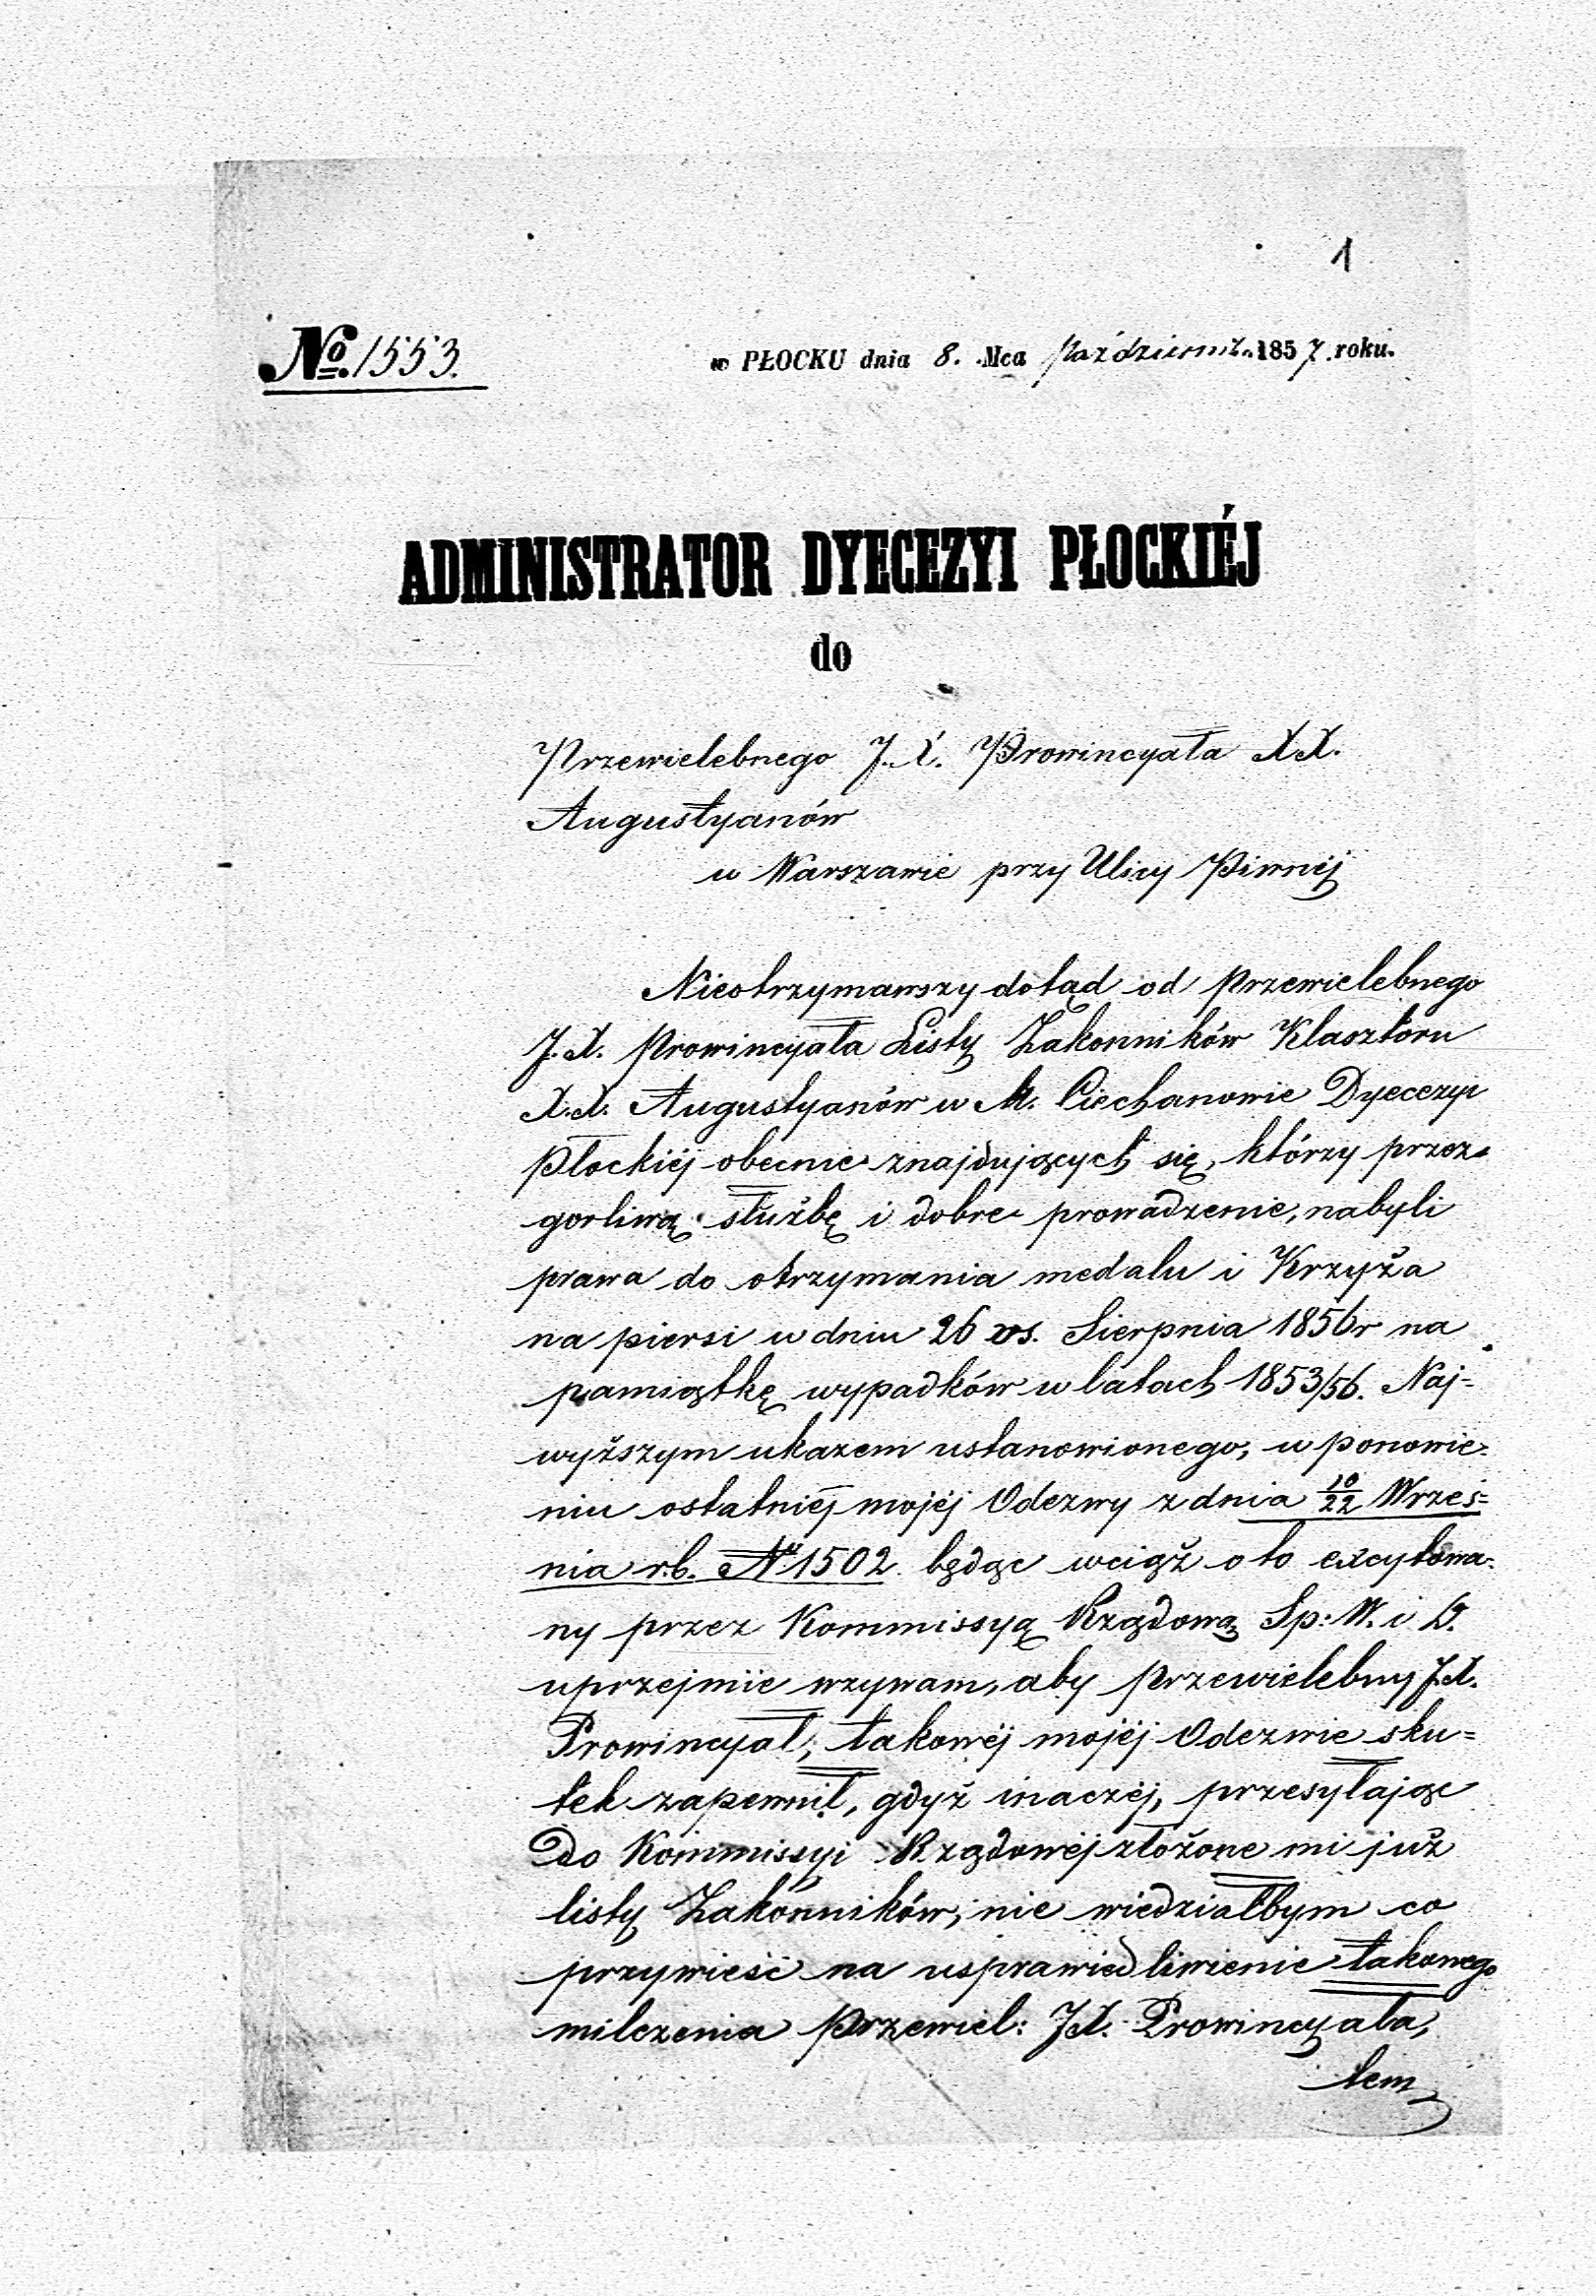 1
No. 1553.
w PŁOCKU dnia 8. Mca Październ. 1857 roku.
ADMINISTRATOR DYECEZYI PŁOCKIÉJ
do
Przewielebnego J.X. Prowincyała XX.
Augustyanów
w Warszawie przy Ulicy Piwnéj
Nieotrzymawszy dotąd od Przewielebnego
J.X. Prowincyała Listy Zakonników Klasztoru
X.X. Augustyanów w M. Ciechanowie Dyecezyi
Płockiéj obecnie znajdujących się, którzy przez
gorliwą służbę i dobre prowadzenie, nabyli
prawa do otrzymania medalu i Krzyża
na piersi w dniu 26 vs. Sierpnia 1856r na
pamiątkę wypadków w latach 1853/56. Naj=
wyższym ukazem ustanowionego, w ponowie=
niu ostatniéj mojéj Odezwy z dnia 10/22 Wrześ=
nia r.b. N. 1502 będąc wciąż o to excytowa=
ny przez Kommissyą Rządową Sp: W. i D.
uprzejmie wzywam, aby Przewielebny J.X.
Prowincyał, takowéj mojéj Odezwie sku=
tek zapewnił, gdyż inaczéj, przesyłając
do Kommissyi Rządowéj złożone mi już
listy Zakonników, nie wiedziałbym co
przywieść na usprawiedliwienie takowego
milczenia Przewiel: JX. Prowincyała,
tem